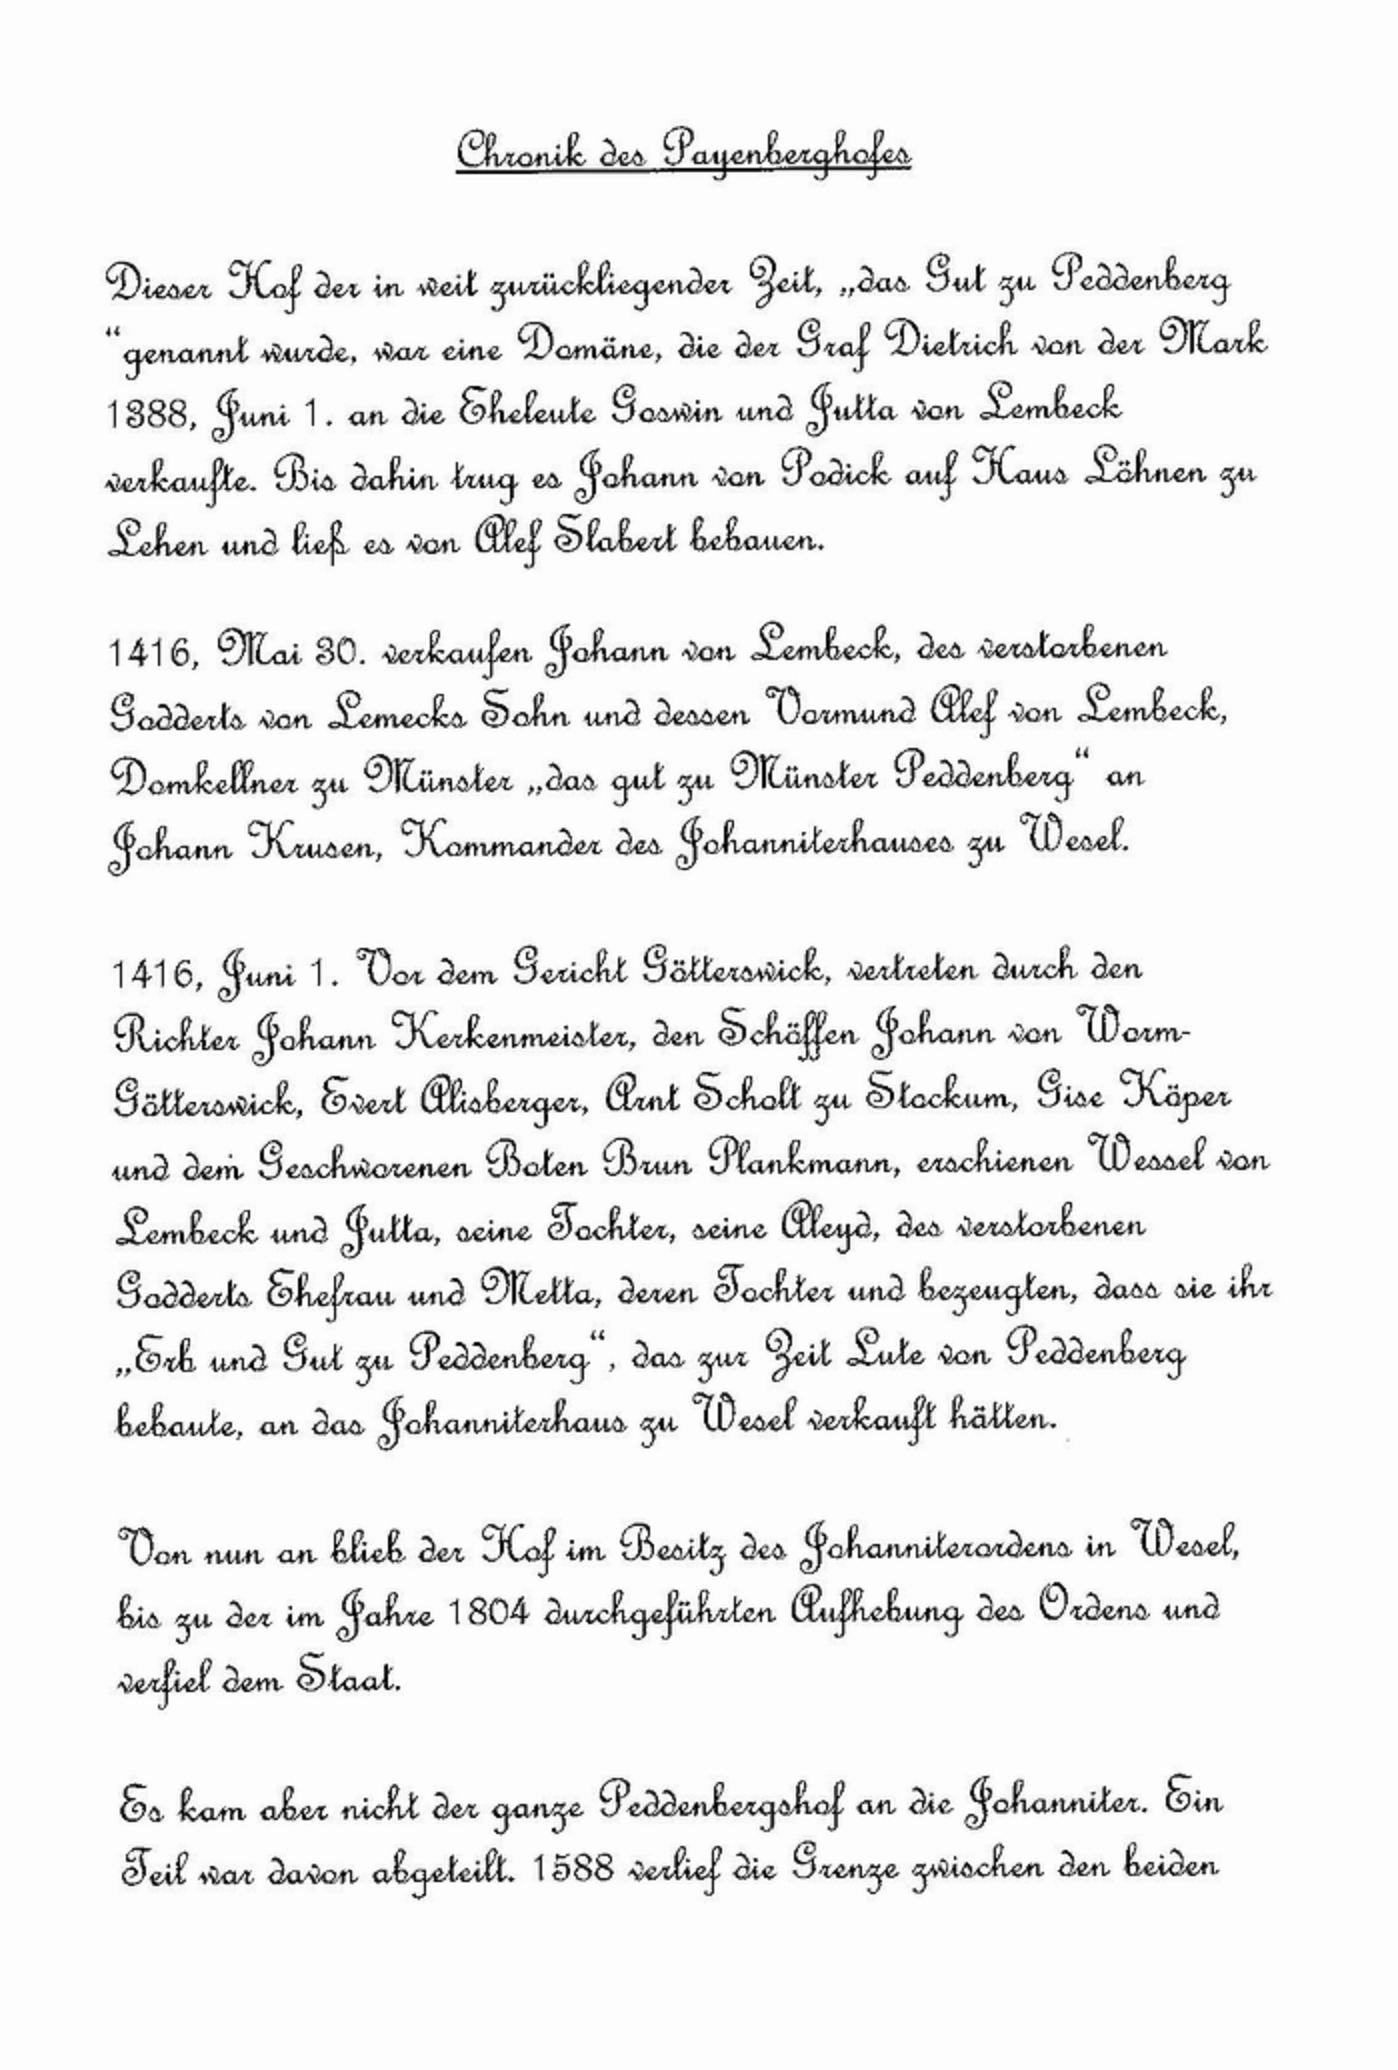 Chronik des Payenberghofes
Dieser Hof der in weit zurückliegender Zeit, „das Gut zu Peddenberg
“genannt wurde, war eine Domäne, die der Graf Dietrich von der Mark
1388, Juni 1. an die Eheleute Goswin und Jutta von Lembeck
verkaufte. Bis dahin trug es Johann von Podick auf Haus Löhnen zu
Lehen und ließ es von Alef Slabert bebauen.
1416, Mai 30. verkaufen Johann von Lembeck, des verstorbenen
Godderts von Lemecks Sohn und dessen Vormund Alef von Lembeck,
Domkellner zu Münster „das gut zu Münster Peddenberg“ an
Johann Krusen, Kommander des Johanniterhauses zu Wesel.
1416, Juni 1. Vor dem Gericht Götterswick, vertreten durch den
Richter Johann Kerkenmeister, den Schöffen Johann von Worm-
Götterswick, Evert Alisberger, Arnt Scholt zu Stockum, Gise Köper
und dem Geschworenen Boten Brun Plankmann, erschienen Wessel von
Lembeck und Jutta, seine Tochter, seine Aleyd, des verstorbenen
Godderts Ehefrau und Metta, deren Tochter und bezeugten, dass sie ihr
„Erb und Gut zu Peddenberg“, das zur Zeit Lute von Peddenberg
bebaute, an das Johanniterhaus zu Wesel verkauft hätten.
Von nun an blieb der Hof im Besitz des Johanniterordens in Wesel,
bis zu der im Jahre 1804 durchgeführten Aufhebung des Ordens und
verfiel dem Staat.
Es kam aber nicht der ganze Peddenbergshof an die Johanniter. Ein
Teil war davon abgeteilt. 1588 verlief die Grenze zwischen den beiden